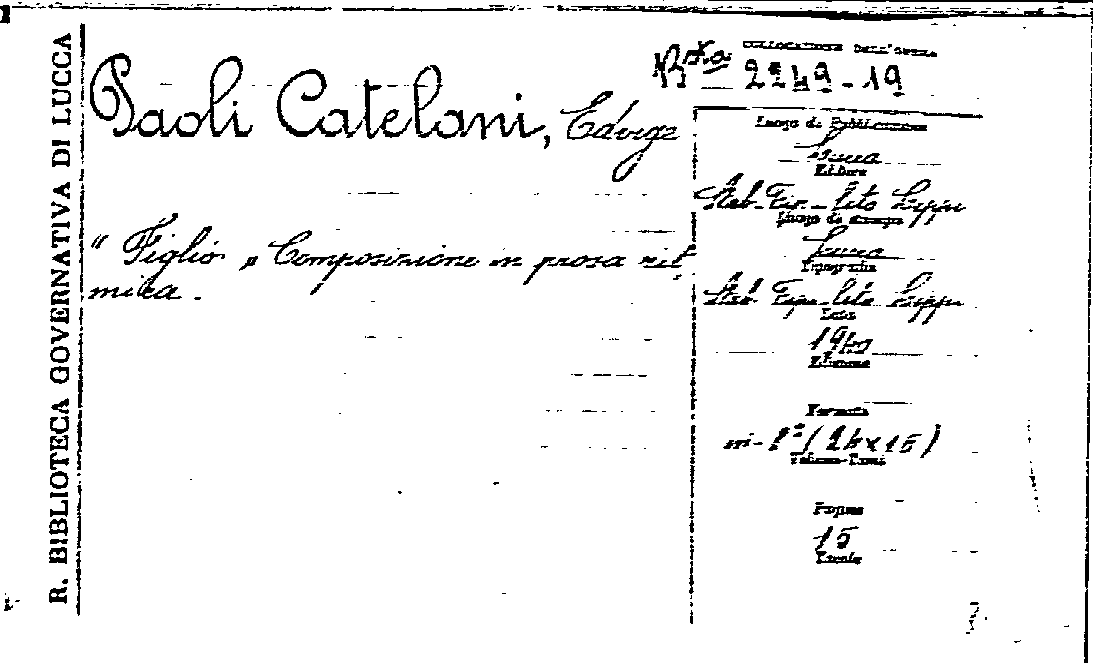 R. BIBLIOTECA GOVERNATIVA DI LUCCA
Paoli Catelani, Edvige
"Figlio" Composizione in prosa rit-
mica.
COLLOCAZIONE DELL'OPERA
B.ta 2249-19
Luogo di Pubblicazione
Lucca
Editore
Stab. Tip-lito Lippi
Luogo di stampa
Lucca
Tipografia
Stab. Tipo-lito Lippi
Data
Edizione
Formato
in-8° (24x15)
Volume-Tomi
Pagine
15
Tavole